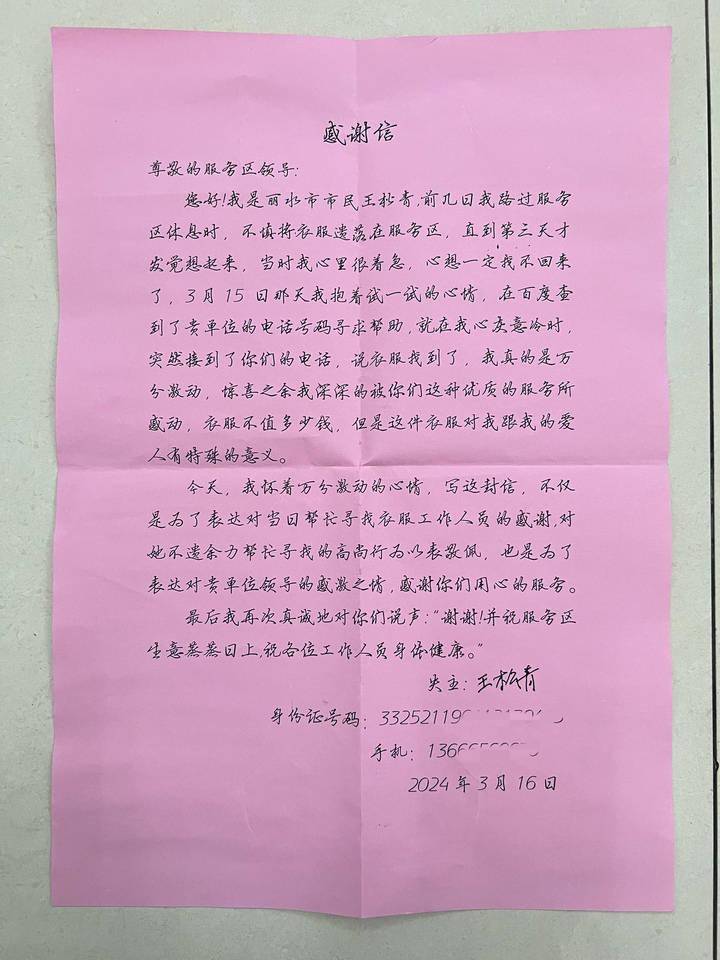 感谢信
尊敬的服务区领导：
您好!我是丽水市市民王松青,前几日我路过服务
区休息时，不填将衣服遗落在服务区，直到第三天才
发觉想起来，当时我心里很着急，心想一定找不回来
了，3月15日那天我抱着试一试的心情，在百度查
到了贵单位的电话号码寻求帮助,就在我心灰意冷时，
突然接到了你们的电话，说衣服找到了，我真的是万
分激动，惊喜之余我深深的被你们这种优质的服务所
感动，衣服不值多少钱，但是这件衣服对我跟我的爱
人有特殊的意义。
今天，我怀着万分激动的心情，写这封信，不仅
是为了表达对当日帮忙寻找衣服工作人员的感谢,对
她不遗余力帮忙寻找的高尚行为以表敬佩，也是为了
表达对贵单位领导的感激之情，感谢你们用心的服务。
最后我再次真诚地对你们说声："谢谢!并祝服务区
生意蒸蒸日上,祝各位工作人员身体健康。"
失主：王松青
身份证号码：33252119
手机：1366
2024年3月16日